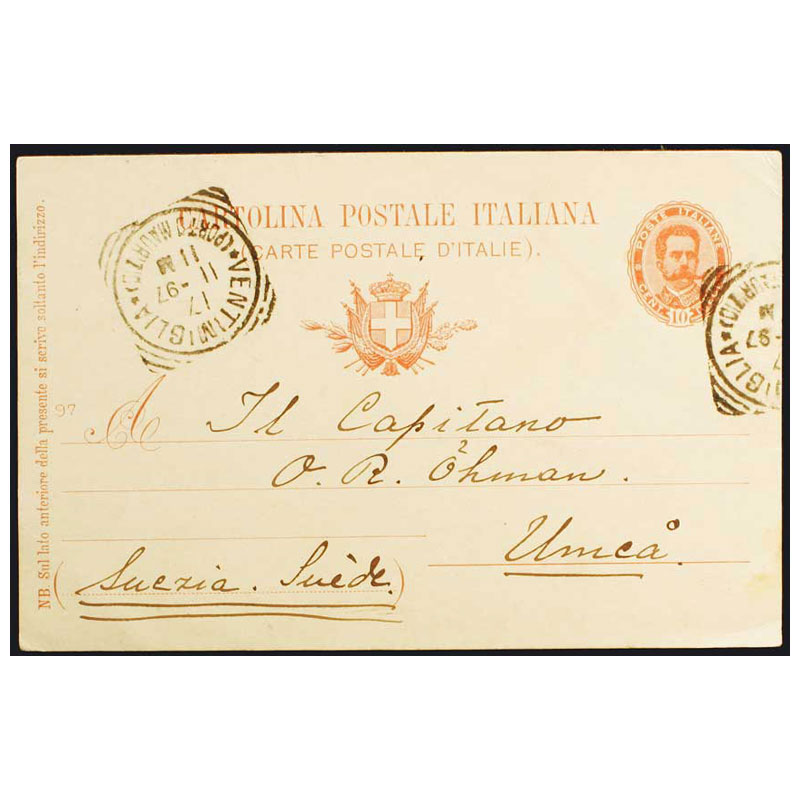 CARTOLINA POSTALE ITALIANA
(CARTE POSTALE D'ITALIE).
POSTE ITALIANE
CENT. 10
VENTIMIGLIA
(PORTO MAURIZIO)
11 M
17
11 - 97
IGLIA
M
7
- 97
A Il Capitano
O. R. Öhman.
Umeå.
(Suezia. Suède.)
97
NB. Sul lato anteriore della presente si scrive soltanto l'indirizzo.